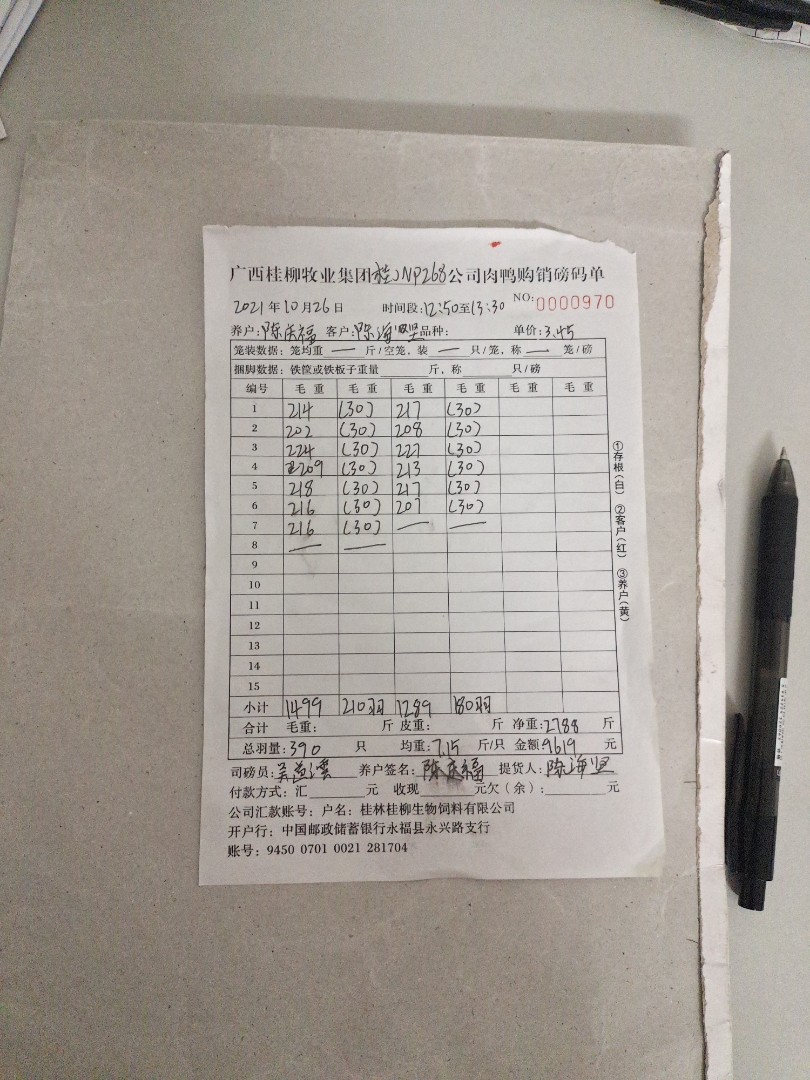 广西桂柳牧业集团(桂)NP268公司肉鸭购销磅码单
2021年10月26日 时间段:12:50至13:30 NO:0000970
养户:陈庆福 客户:陈海坚 品种: 单价:3.45
笼装数据: 笼均重 — 斤/空笼, 装 — 只/笼, 称 — 笼/磅
捆脚数据: 铁筐或铁板子重量 斤, 称 只/磅
编号 毛重 毛重 毛重 毛重 毛重 毛重
1 214 (30) 217 (30)
2 202 (30) 208 (30)
3 224 (30) 227 (30)
4 209 (30) 213 (30)
5 218 (30) 217 (30)
6 216 (30) 207 (30)
7 216 (30) — —
8 — —
9
10
11
12
13
14
15
小计 1499 210羽 1289 180羽
合计 毛重: 斤 皮重: 斤 净重:2788 斤
总羽量:390 只 均重:7.15 斤/只 金额:9619 元
司磅员: 养户签名:陈庆福 提货人:陈海坚
付款方式:汇 元 收现 元欠(余): 元
公司汇款账号: 户名: 桂林桂柳生物饲料有限公司
开户行: 中国邮政储蓄银行永福县永兴路支行
账号: 9450 0701 0021 281704
①存根(白) ②客户(红) ③养户(黄)